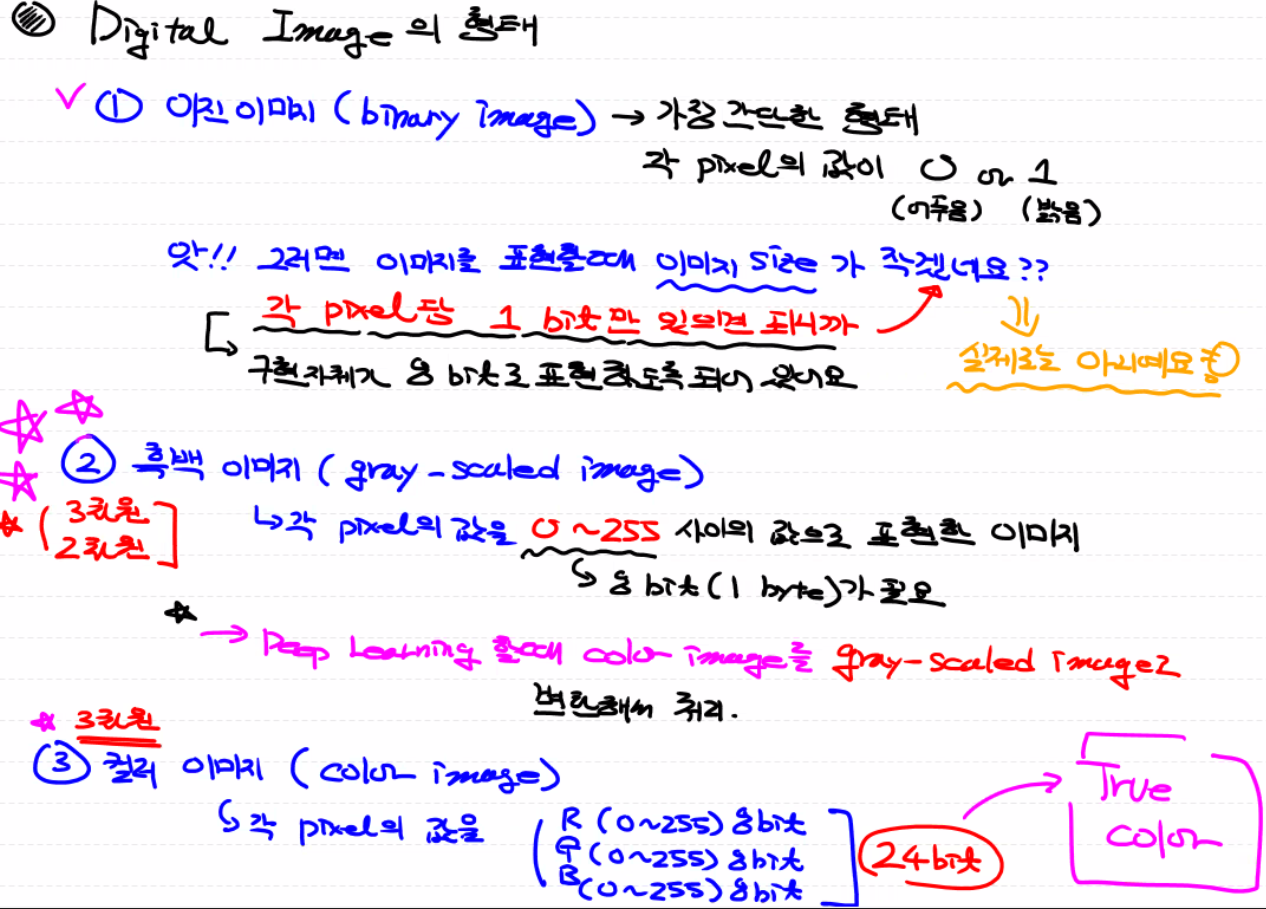 Digital Image의 형태
✓ ① 이진 이미지 (binary image) → 가장 간단한 형태
각 pixel의 값이 0 or 1
(어두움) (밝음)
앗!! 그러면 이미지를 표현할때 이미지 size가 작겠네요??
각 pixel당 1 bit만 있으면 되니까
구현자체가 8 bit로 표현하도록 되어 있어요
실제로는 아니예요
② 흑백 이미지 (gray-scaled image)
3차원
2차원
각 pixel의 값을 0 ~255 사이의 값으로 표현한 이미지
8 bit (1 byte)가 필요
→ Deep Learning 할때 color image를 gray-scaled image로
변환해서 처리.
3차원
③ 컬러 이미지 (color image)
각 pixel의 값을
R (0~255) 8bit
G (0~255) 8bit
B (0~255) 8bit
24bit
True
color